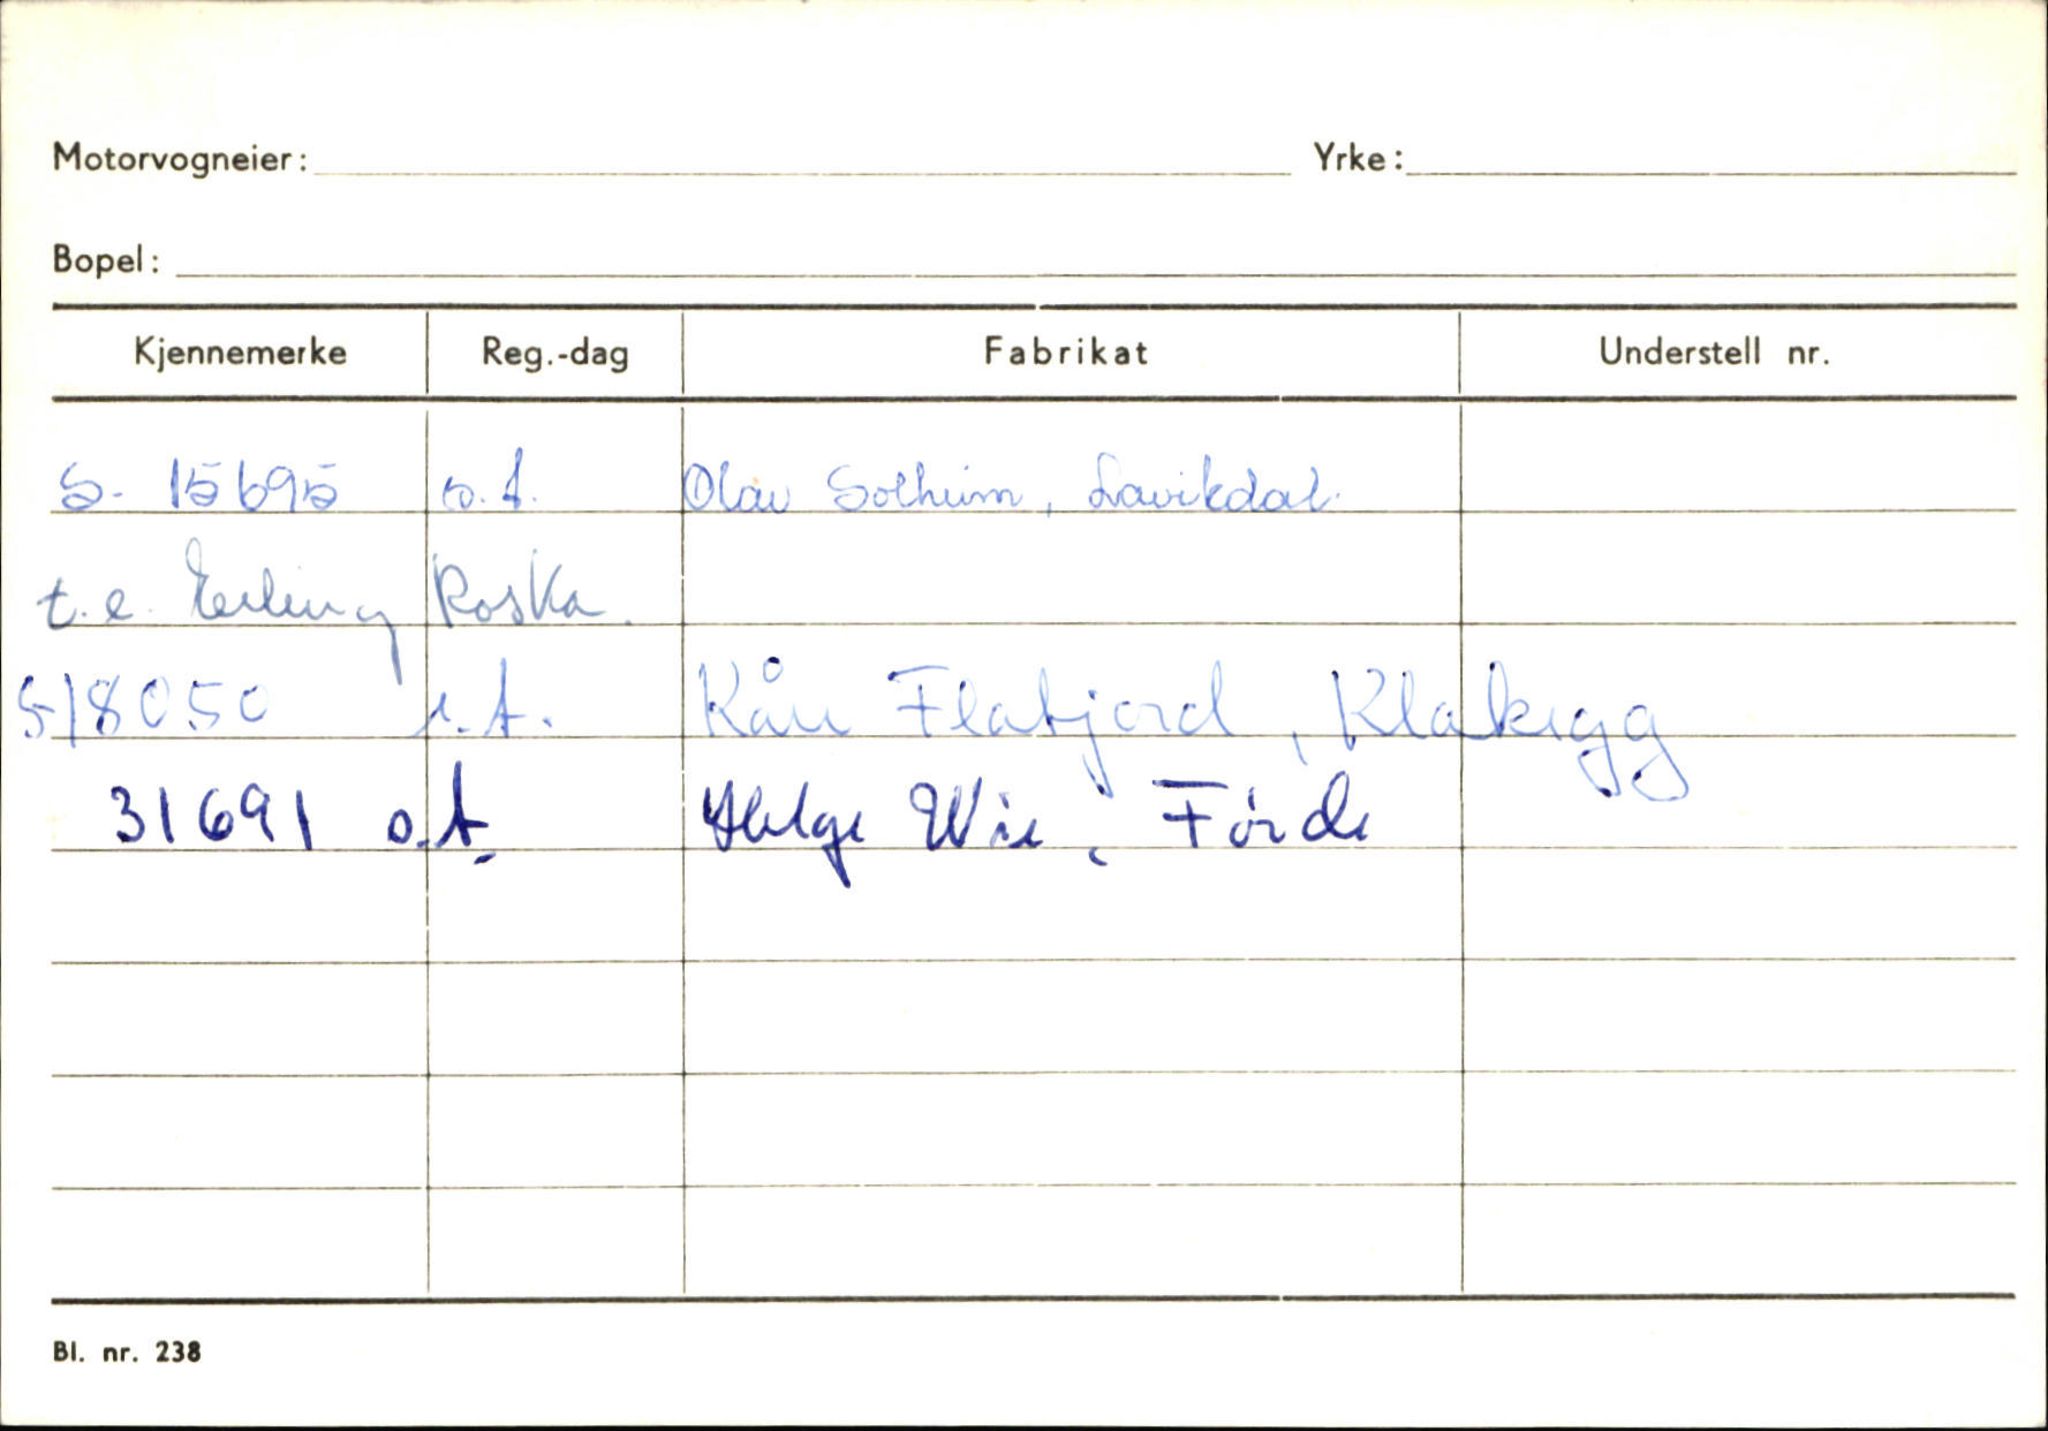 Motorvogneier: Yrke:
Bopel:
Kjennemerke Reg.-dag Fabrikat Understell nr.
S- 15695 o.t. Olav Solheim, Lavikdal.
t.e. Erling Roska.
S18050 o.t. Kåre Flatjord, Klakegg
31691 o.t. Helge Wie, Förde
Bl. nr. 238